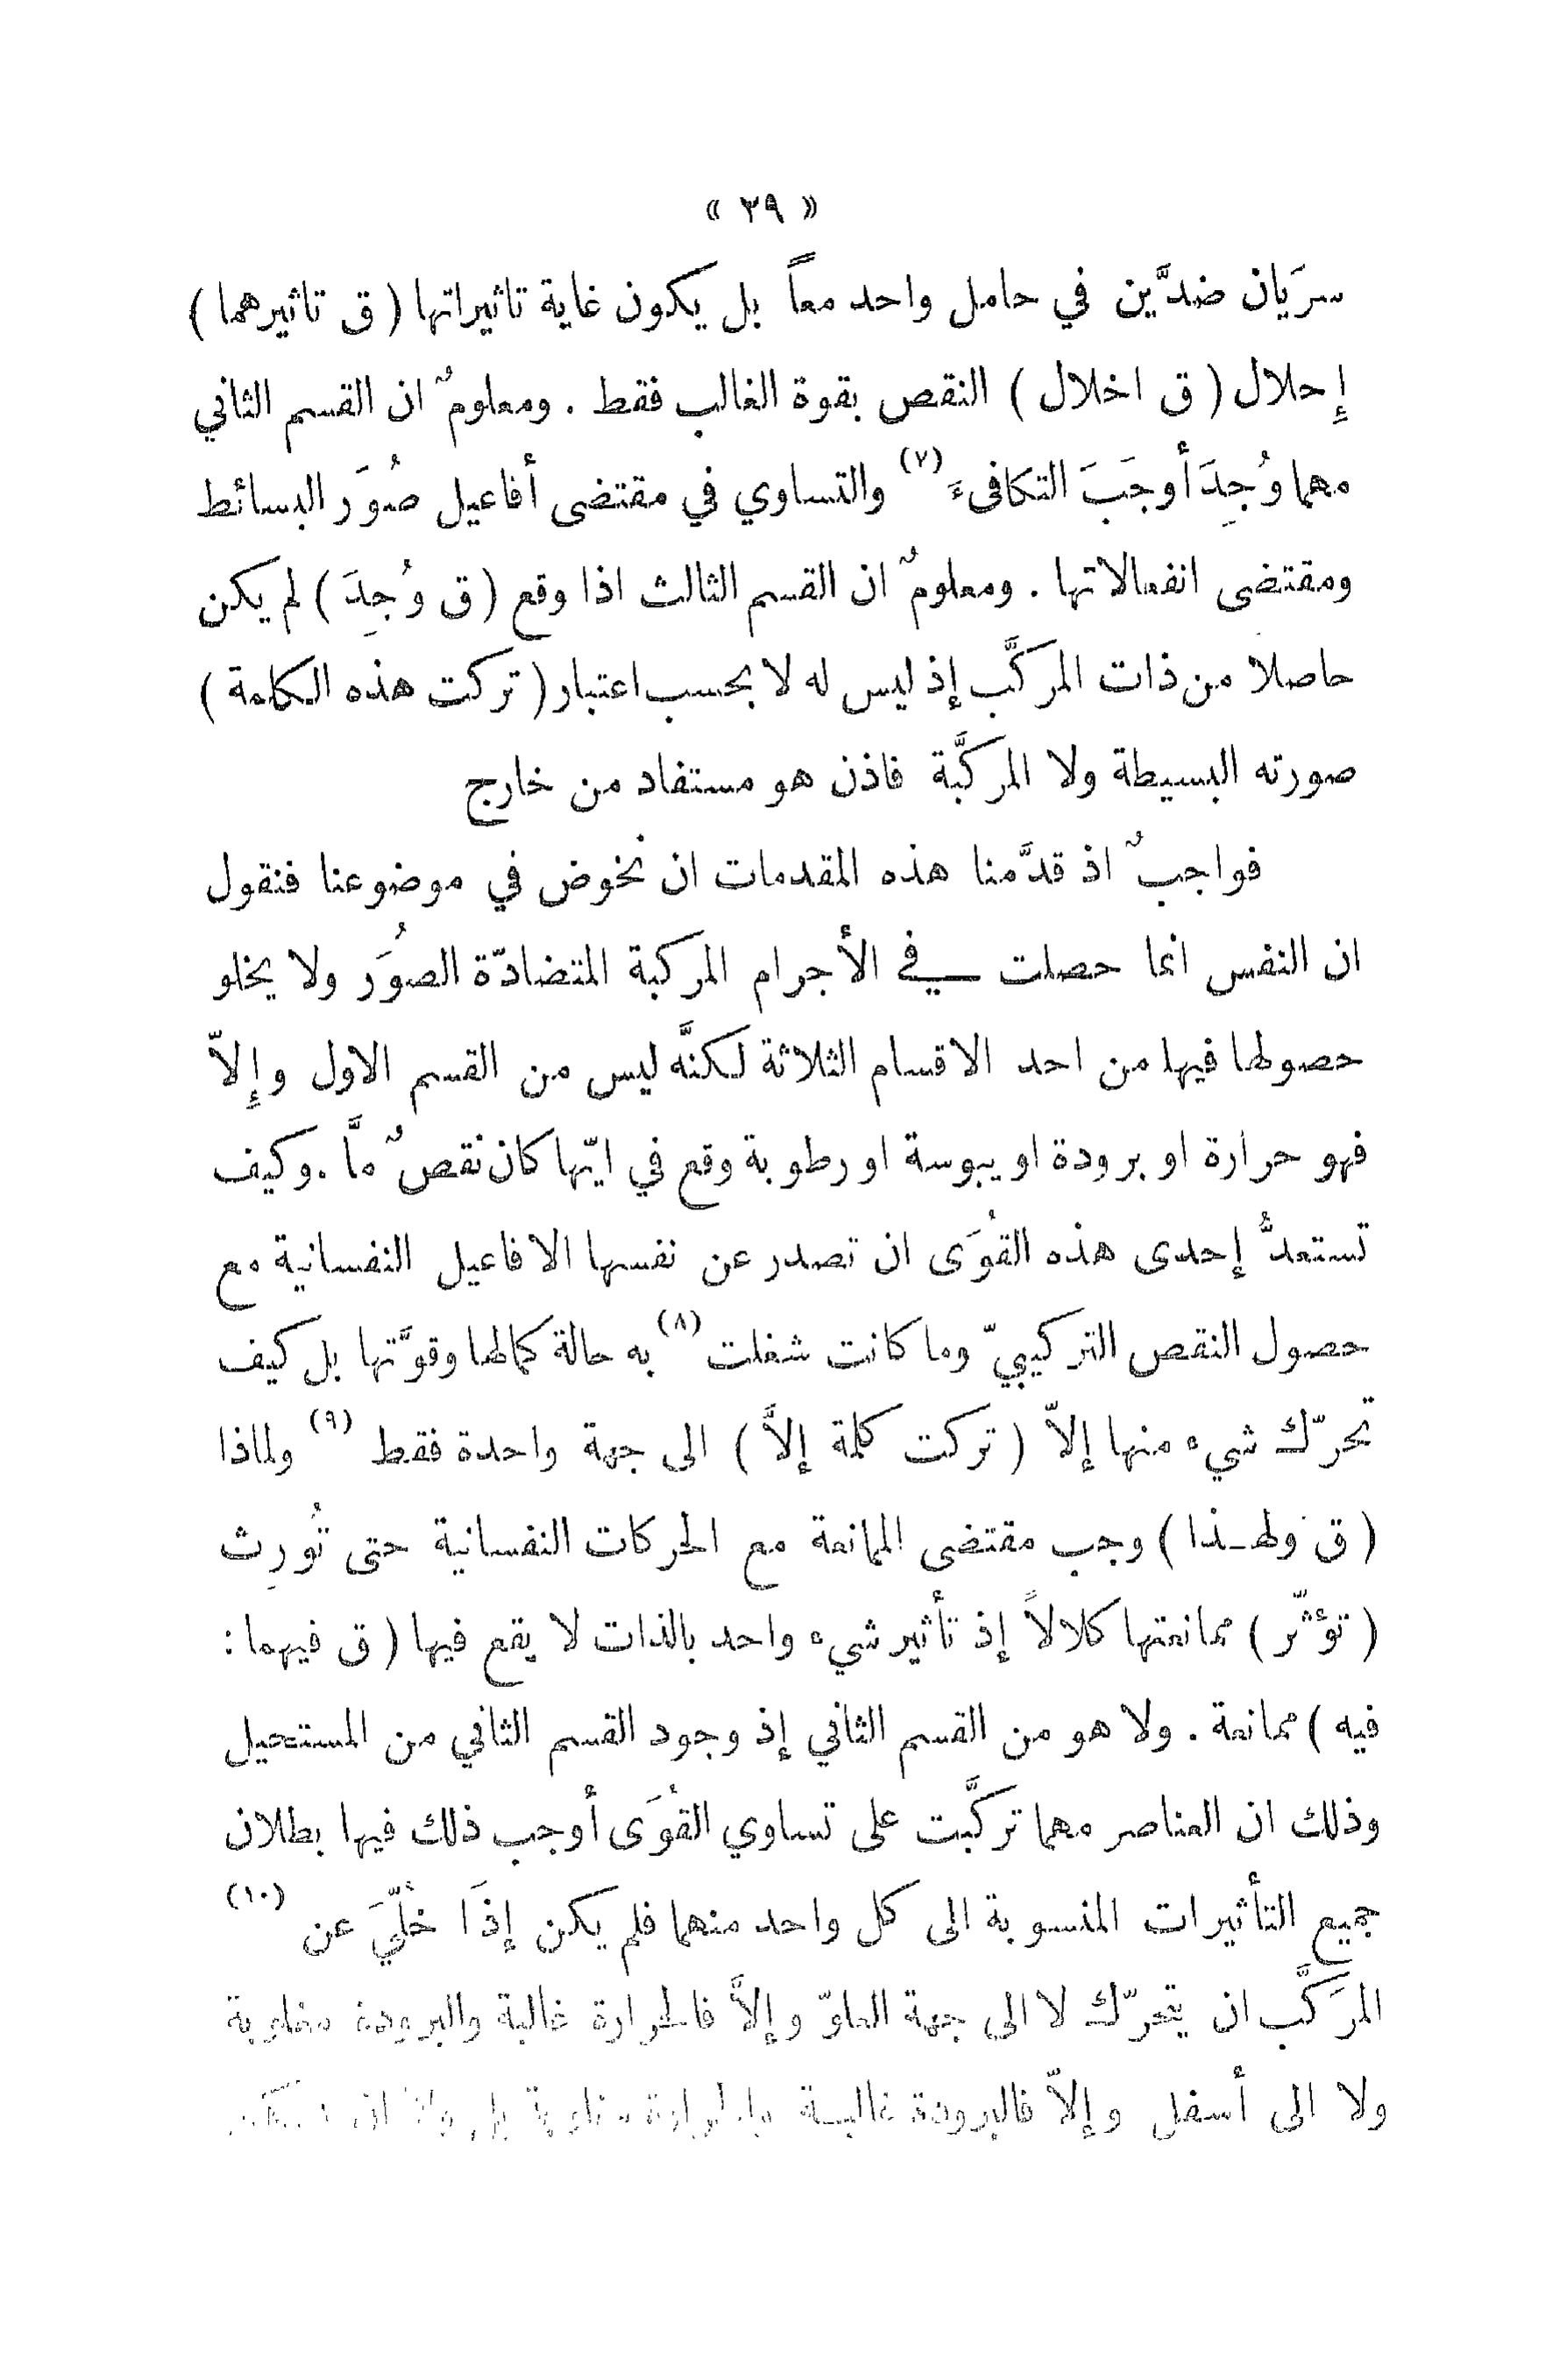 « ٢٩ »
سرَيان ضدَّين في حامل واحد معاً بل يكون غاية تاثيراتها ( ق تاثيرهما )
إحلال ( ق اخلال ) النقص بقوة الغالب فقط . ومعلومٌ ان القسم الثاني
مهما وُجِدَ أوجَبَ التكافىءَ (٧) والتساوي في مقتضى أفاعيل صُوَر البسائط
ومقتضى انفعالاتها . ومعلومٌ ان القسم الثالث اذا وقع ( ق وُجِدَ ) لم يكن
حاصلا من ذات المركَّب إذ ليس له لا بحسب اعتبار ( تركت هذه الكلمة )
صورته البسيطة ولا المركَّبة فاذن هو مستفاد من خارج
فواجبٌ اذ قدَّمنا هذه المقدمات ان نخوض في موضوعنا فنقول
ان النفس انما حصلت في الأجرام المركبة المتضادّة الصُوَر ولا يخلو
حصولها فيها من احد الاقسام الثلاثة لكنَّه ليس من القسم الاول وإلاّ
فهو حرارة او برودة او يبوسة او رطوبة وقع في ايّها كان نقصٌ مّا . وكيف
تستعدُّ إحدى هذه القُوَى ان تصدر عن نفسها الافاعيل النفسانية مع
حصول النقص التركيبيّ وما كانت شغلت (٨) به حالة كمالها وقوَّتها بل كيف
تحرّك شيء منها إلاّ ( تركت كلمة إلاَّ ) الى جهة واحدة فقط (٩) ولماذا
( ق ولهـذا ) وجب مقتضى الممانعة مع الحركات النفسانية حتى تُورِث
( تؤثّر ) ممانعتها كلالاً إذ تأثير شيء واحد بالذات لا يقع فيها ( ق فيهما :
فيه ) ممانعة . ولا هو من القسم الثاني إذ وجود القسم الثاني من المستحيل
وذلك ان العناصر مهما تركَّبت على تساوي القُوَى أوجب ذلك فيها بطلان
جميع التأثيرات المنسوبة الى كل واحد منهما فلم يكن إذَا خُلّيَ عن (١٠)
المرَكَّب ان يتحرّك لا الى جهة العلوّ وإلاَّ فالحرارة غالبة والبرودة مغلوبة
ولا الى أسفل وإلاّ فالبرودة غالبـة والحرارة مغلوبة بل ولا ان